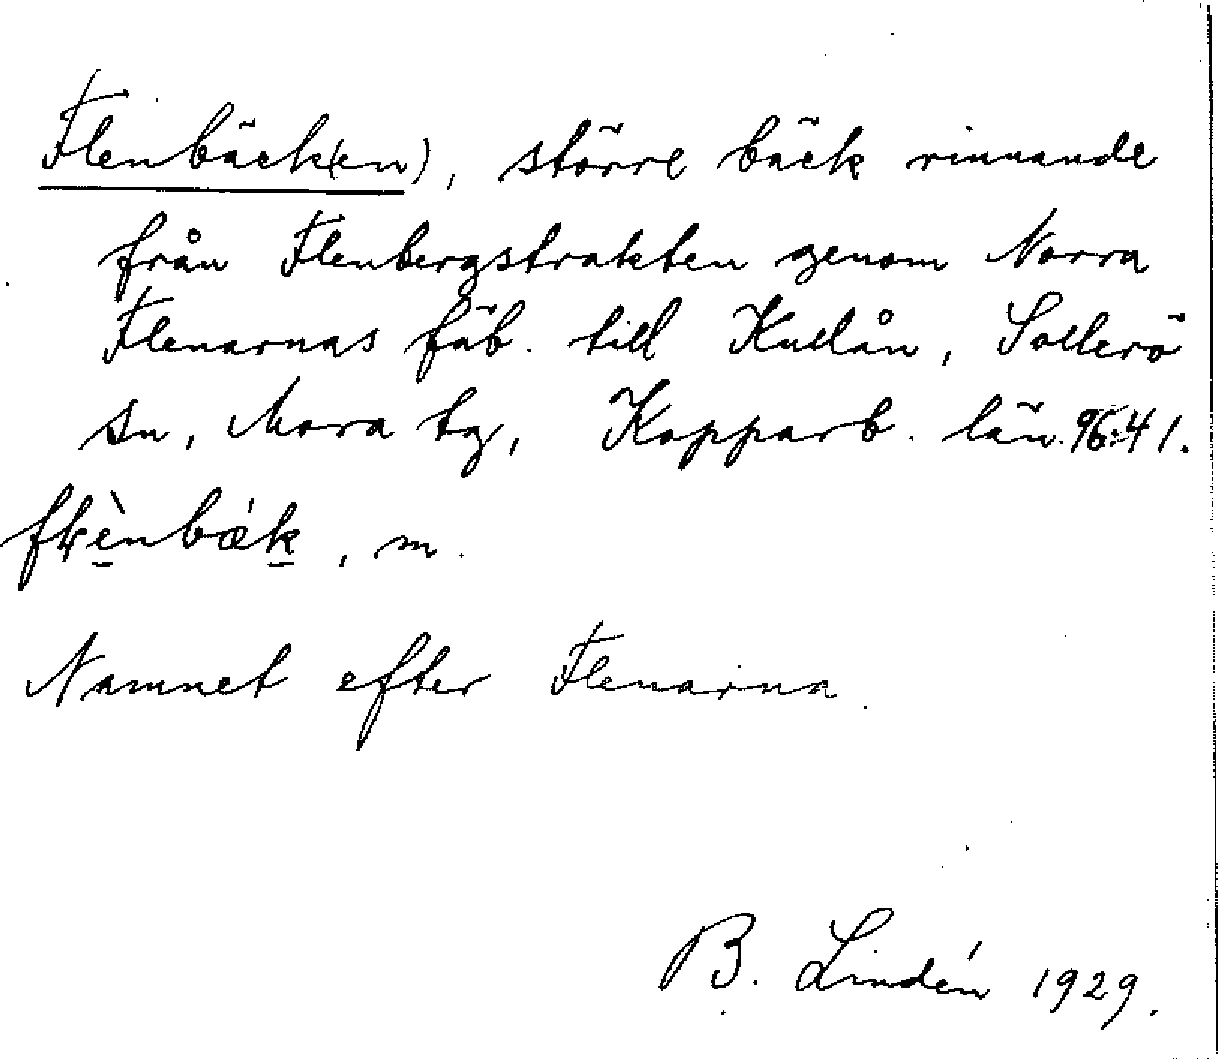 Flenbäck(en), större bäck rinnande
från Flenbergstrakten genom Norra
Flenarnas fäb. till Kullån, Sollerö
sn, Mora tg, Kopparb. län. 96:41.
, m.
Namnet efter Flenarna.
B. Lindén 1929.